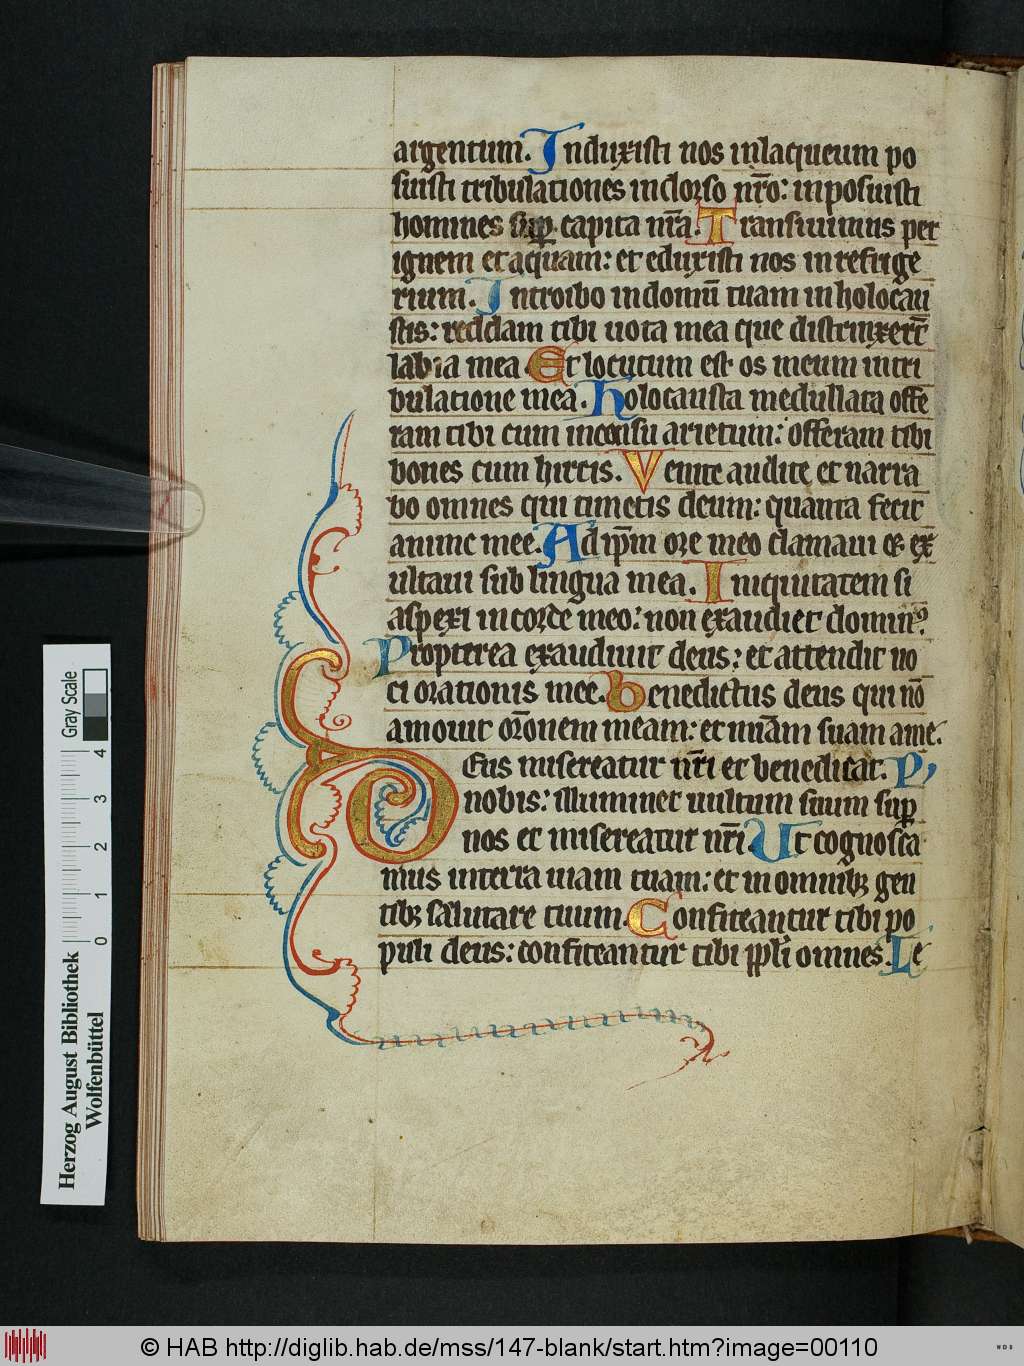 argentum. Induxisti nos inlaqueum po
suisti tribulationes indorso nr̄o: inposuisti
homines sup̄ capita nr̄a. Transiuimus per
ignem et aquam: et eduxisti nos in refrige
rium. Introibo indomū tuam in holocau
stis: reddam tibi uota mea que distinxerūt
labia mea Et locutum est os meum intri
bulatione mea. Holocausta medullata offe
ram tibi cum incensu arietum: offeram tibi
boues cum hircis. Venite audite et narra
bo omnes qui timetis deum: quanta fecit
anime mee. Ad ip̄m ore meo clamaui et ex
ultaui sub lingua mea. Iniquitatem si
aspexi in corde meo: non exaudiet dominꝰ
Propterea exaudiuit deus: et attendit uo
ci orationis mee. Benedictus deus qui nō
amouit or̄onem meam: et mīam suam a me.
Deus misereatur nr̄i et benedicat.
nobis: illuminet uultum suum sup̄
nos et misereatur nr̄i Ut cognosca
mus interra uiam tuam: et in omnibꝫ gen
tibꝫ salutare tuum. Confiteantur tibi po
puli deus: confiteantur tibi ppl̄i omnes. Le
Gray Scale
4 3 2 1 0
Herzog August Bibliothek
Wolfenbüttel
© HAB http://diglib.hab.de/mss/147-blank/start.htm?image=00110